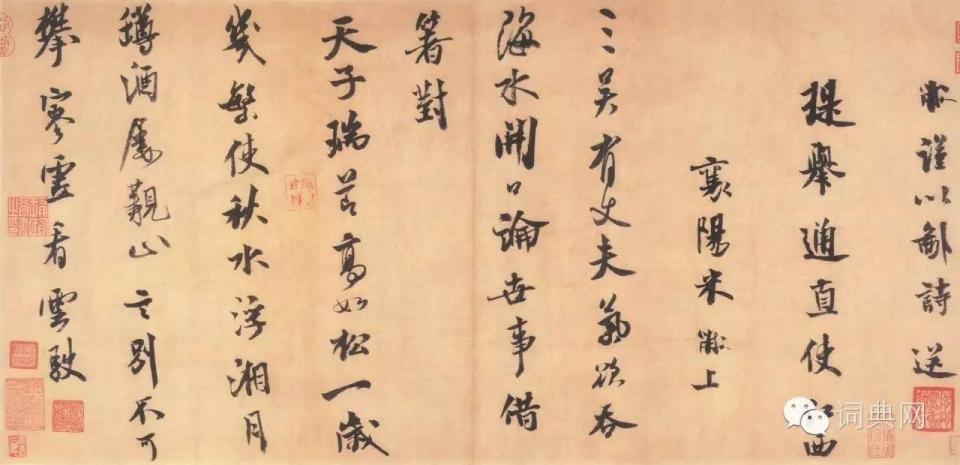 黻謹以鄙詩送
提舉通直使江西
襄陽米黻上
三吳有丈夫氣欲吞
海水開口論世事借
箸對
天子瑞節高如松一歲
幾繁使秋水浮湘月
罇酒屢覯止言別不可
攀寒雲看雲駛
词典网